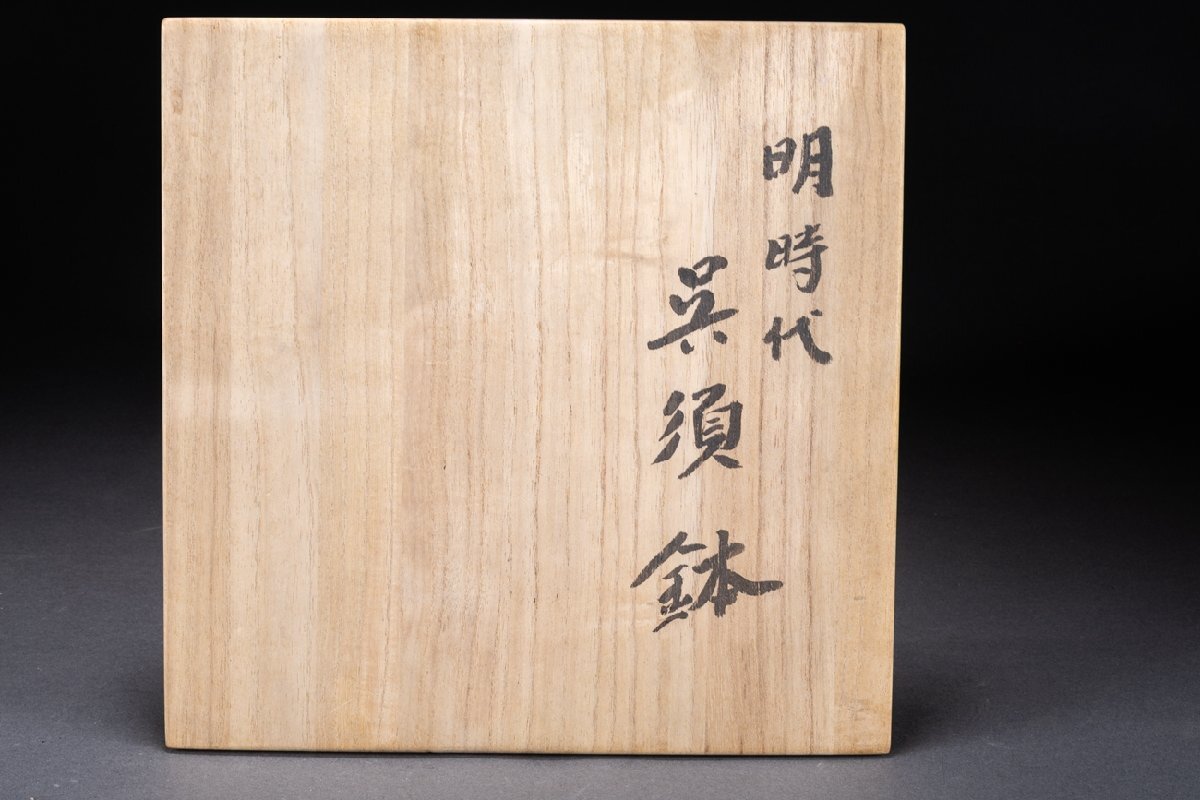 明時代
呉須鉢